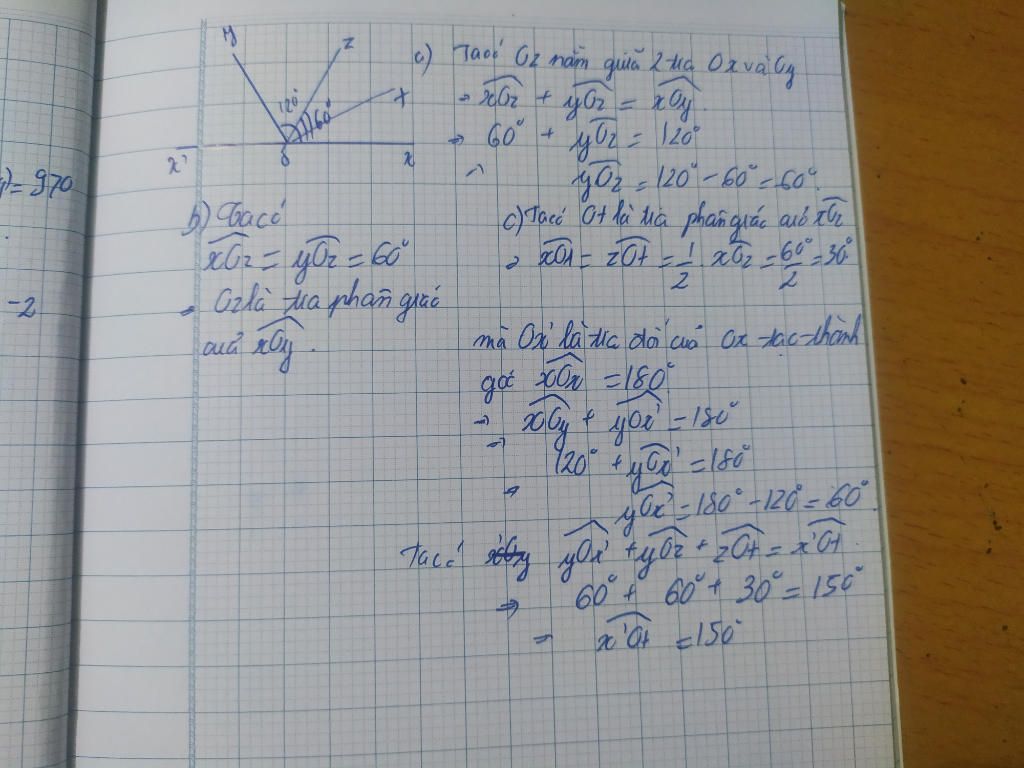 = 970
-2
y
z
t
120°
60°
x'
O
x
a) Ta có Oz nằm giữa 2 tia Ox và Oy
→ xOz + yOz = xOy.
→ 60° + yOz = 120°
yOz = 120° - 60° = 60°.
b) Ta có
xOz = yOz = 60°
Oz là tia phân giác
của xOy.
c) Ta có Ot là tia phân giác của xOz
→ xOt = zOt = 1/2 xOz = 60°/2 = 30°
mà Ox' là tia đối của Ox tạo thành
góc xOx' = 180°
→ xOy + yOx' = 180°
→ 120° + yOx' = 180°
→ yOx' = 180° - 120° = 60°.
Ta có yOx' + yOz + zOt = x'Ot.
⇒ 60° + 60° + 30° = 150°
x'Ot = 150°